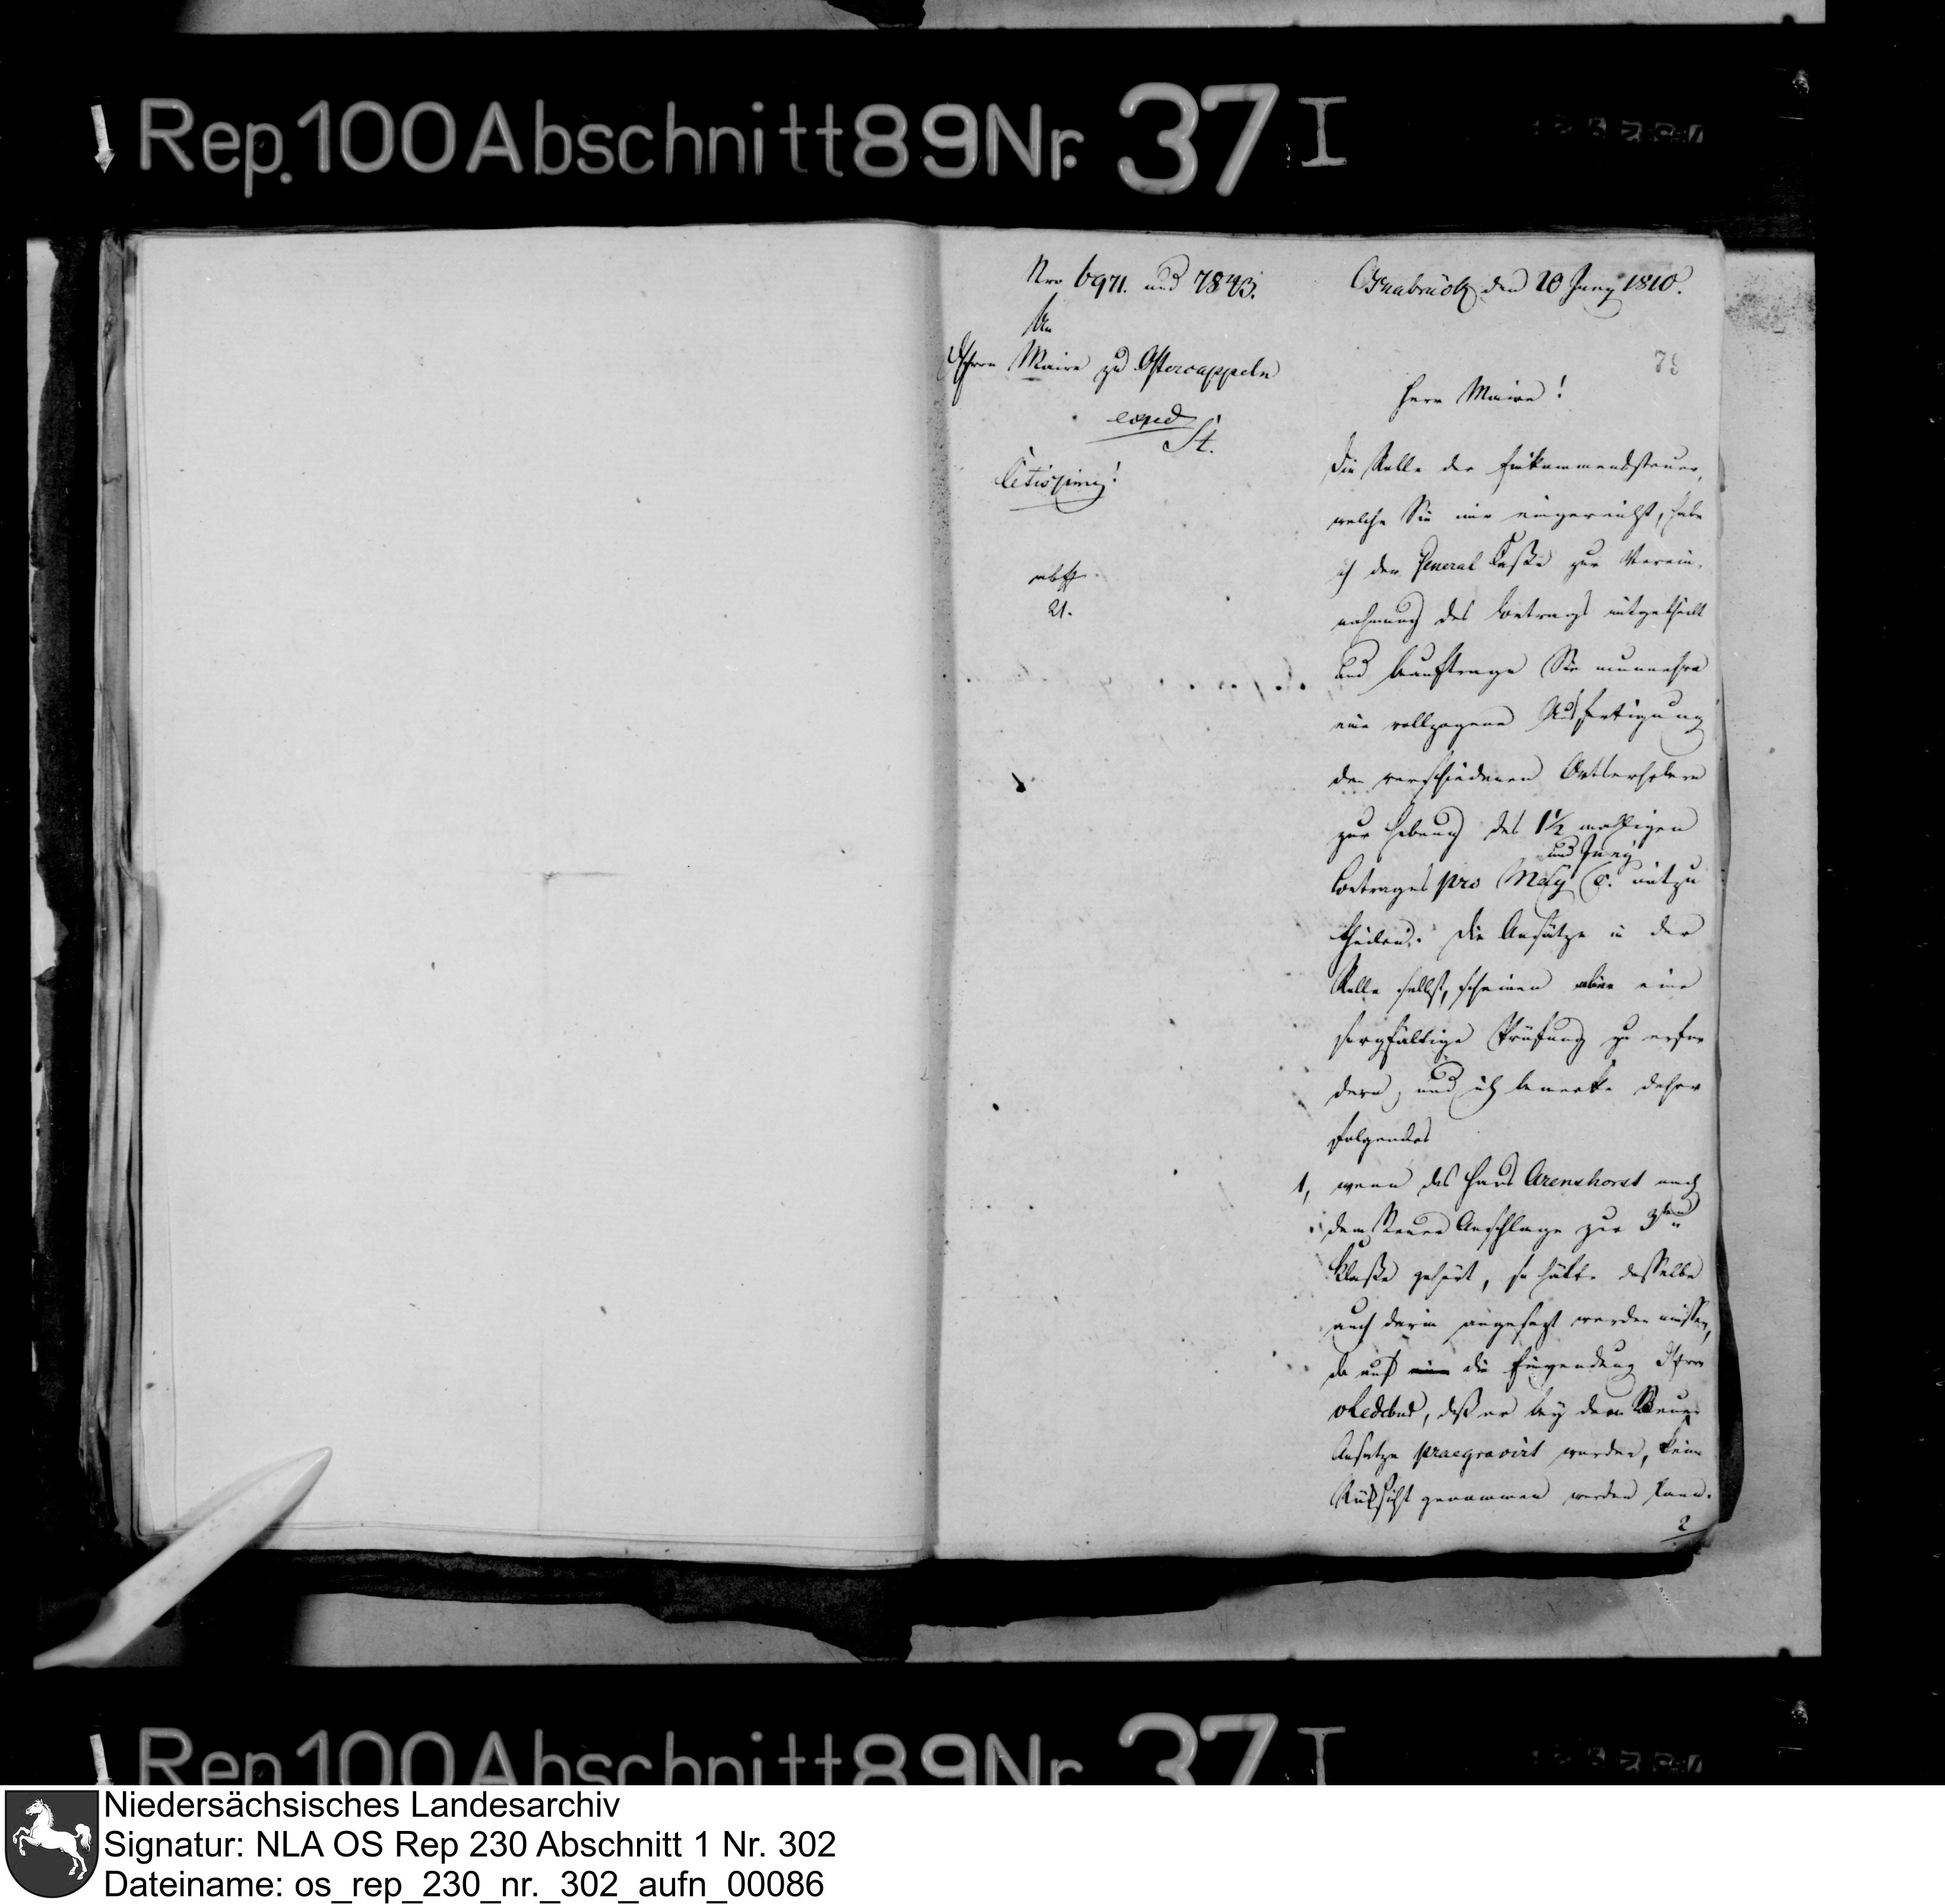 Rep. 100 Abschnitt 89 Nr. 37 I
Nro 6971. und 7843.
An
Herrn Maire zu Ostercappeln
exped
St.
Citissime!
21.
Osnabrück den 20 Juny 1810.
73
Herr Maire!
Die Rolle der Einkommensteuer,
welche Sie mir eingereicht, habe
ich der General Casse zur Verein-
nahmung des Betrags mitgetheilt
und beauftrage Sie nunmehro
eine vollzogene Ausfertigung
den verschiedenen Ortserhebern
zur Hebung des 1½ maligen
und Juny
Betrages pro May c. mitzu
theilen. Die Ansätze in der
Rolle selbst, scheinen aber eine
sorgfältige Prüfung zu erfor
dern, und ich bemerke daher
folgendes
1, wenn das Haus Arenshorst nach
dem Steuer Anschlage zur 3ten
Klasse gehört, so hätte dasselbe
auch darin angesezt werden müssen,
da auf die Einwendung Herrn
v Ledebur, daß er bey dem Steuer
Ansatze praegravirt worden, keine
Rücksicht genommen werden kann.
2
Rep. 100 Abschnitt 89 Nr. 37 I
Niedersächsisches Landesarchiv
Signatur: NLA OS Rep 230 Abschnitt 1 Nr. 302
Dateiname: os_rep_230_nr._302_aufn_00086